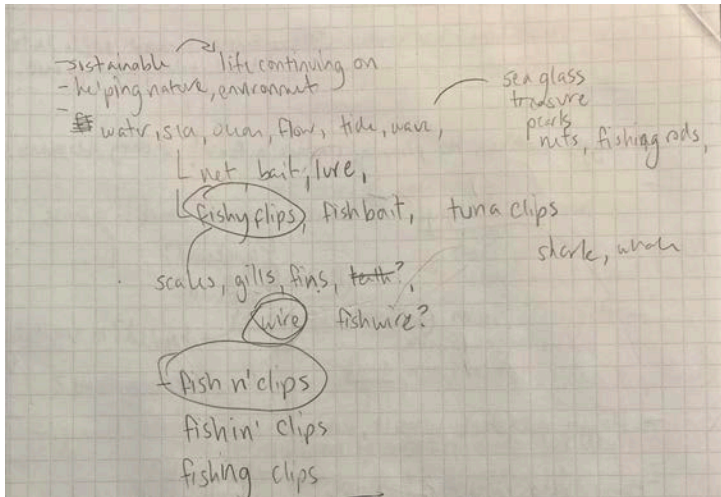 - sistainable life continuing on
- helping nature, environment
-
water, sea, ocean, flow, tide, wave,
sea glass
treasure
pearls
nets, fishing rods,
net bait, lure,
fishy flips, fishbait, tuna clips
shark, whale
scales, gills, fins, teeth?,
wire fishwire?
- fish n' clips
fishin' clips
fishing clips